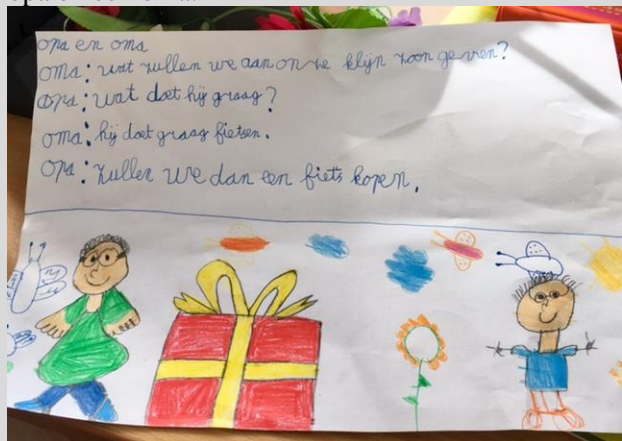 opa en oma
oma: wat zullen we aan onze klijn zoon geven?
opa: wat doet hij graag?
oma: hij doet graag fietsen.
opa: zullen we dan een fiets kopen.